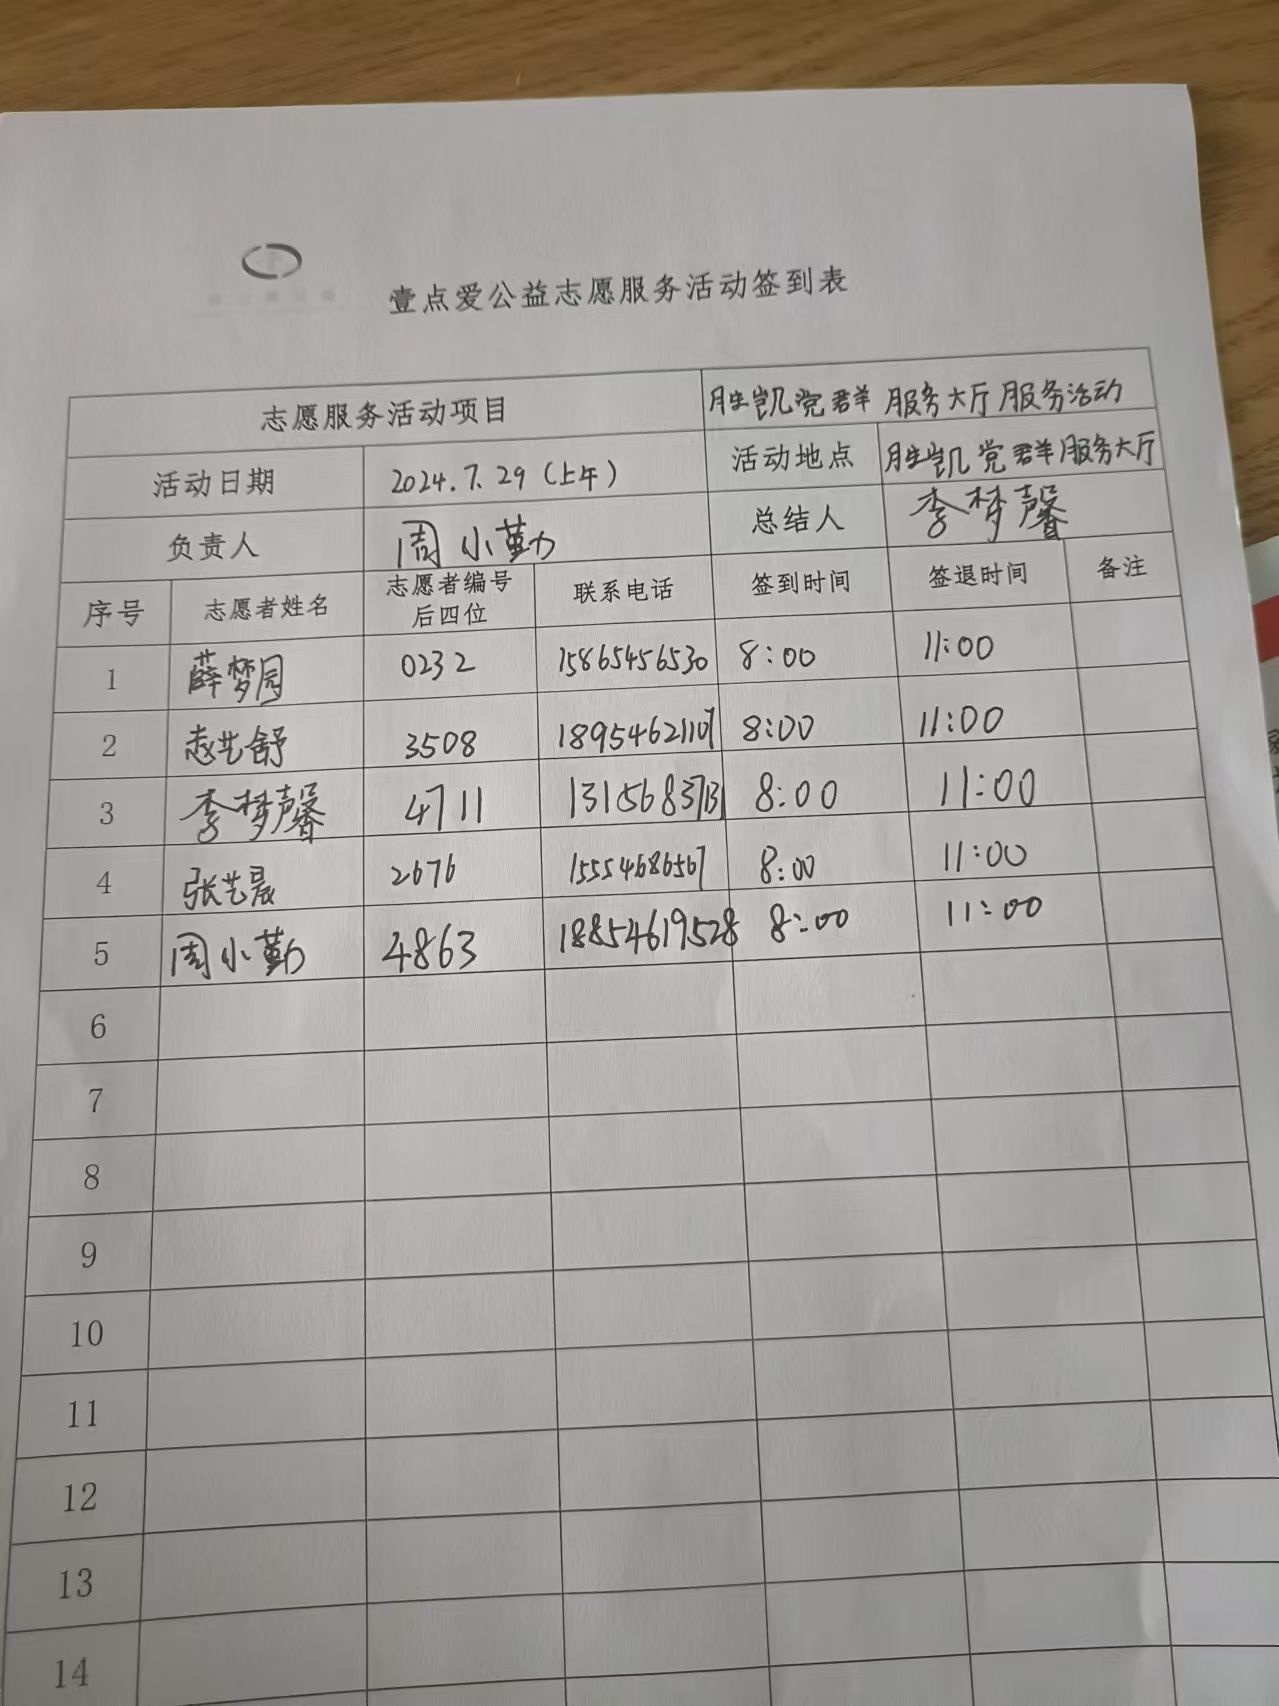 壹点爱公益志愿服务活动签到表
志愿服务活动项目 胜凯党群服务大厅服务活动
活动日期 2024.7.29(上午) 活动地点 胜凯党群服务大厅
负责人 周小勤 总结人 李梦馨
序号 志愿者姓名 志愿者编号后四位 联系电话 签到时间 签退时间 备注
1 薛梦园 0232 15865456530 8:00 11:00
2 赵艺舒 3508 18954621107 8:00 11:00
3 李梦馨 4711 13156837131 8:00 11:00
4 张艺晨 2676 15554686567 8:00 11:00
5 周小勤 4863 18854619528 8:00 11:00
6
7
8
9
10
11
12
13
14